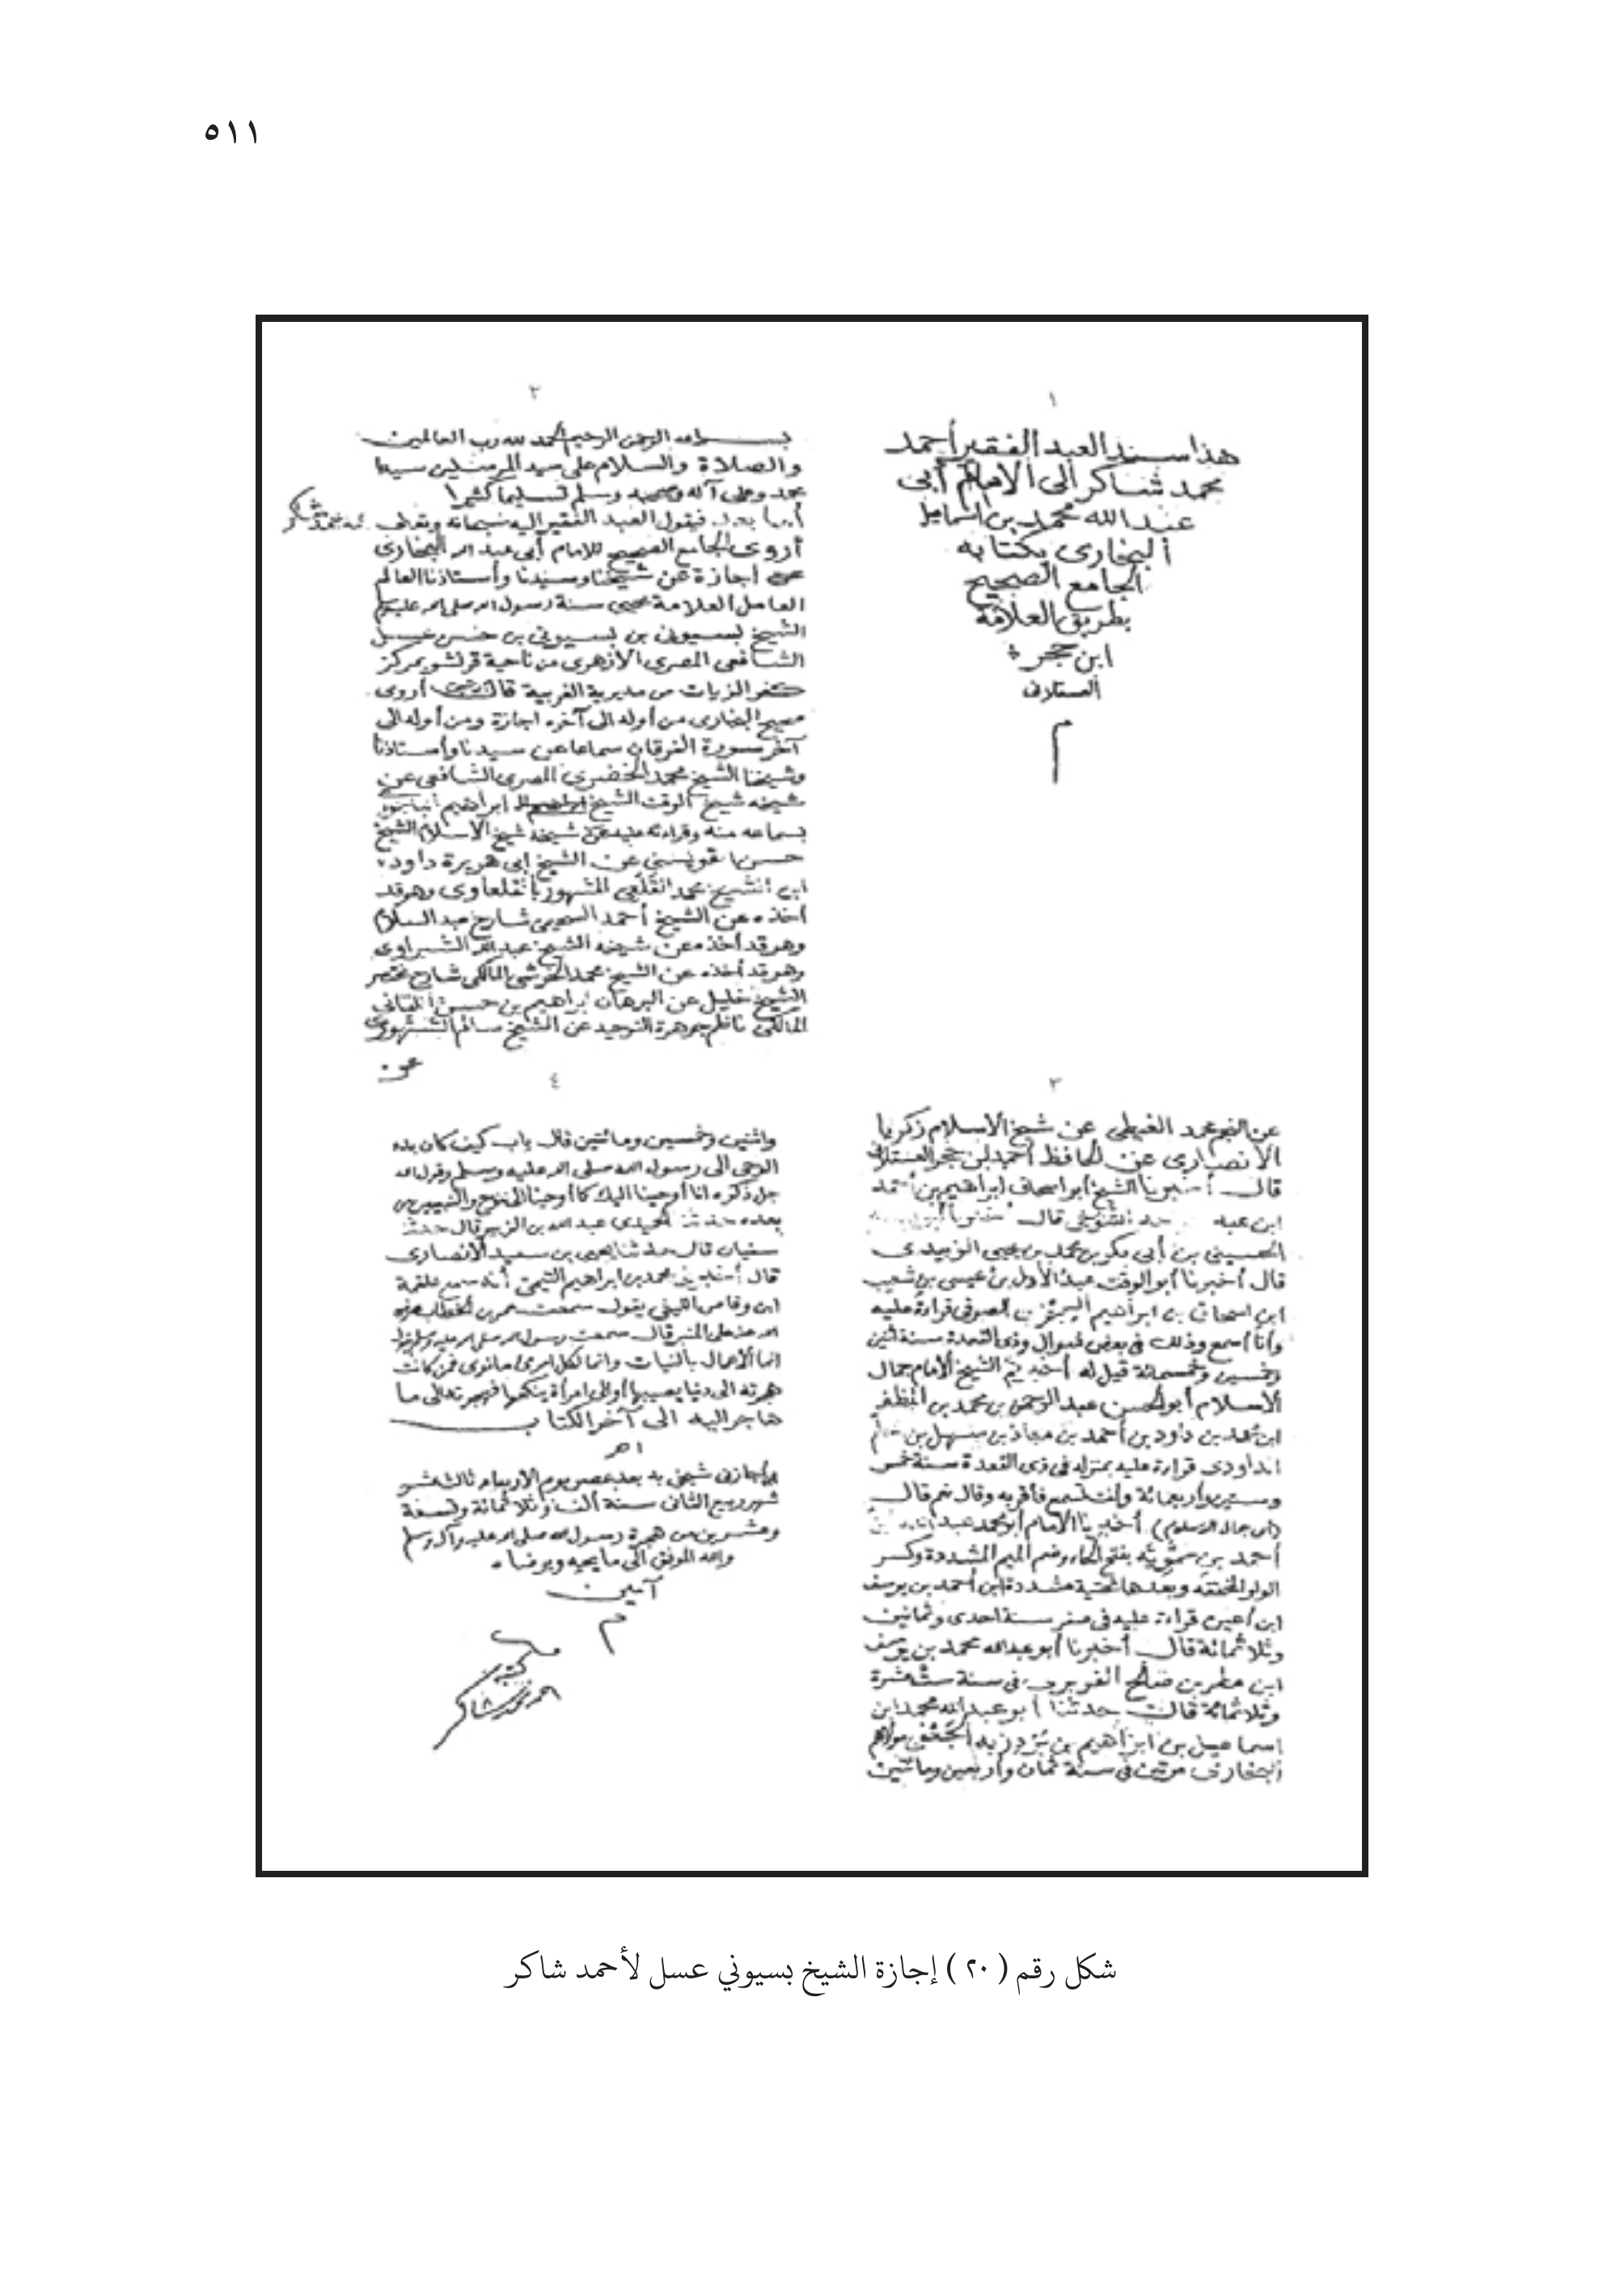 ٥١١
١
هذا سند العبد الفقير أحمد
محمد شاكر إلى الامام أبى
عبد الله محمد بن اسماعيل
البخارى بكتابه
الجامع الصحيح
بطريق العلامة
ابن حجر
العسقلانى
م
٢
بسم الله الرحمن الرحيم الحمد لله رب العالمين
والصلاة والسلام على سيد المرسلين سيدنا
محمد وعلى آله وصحبه وسلم تسليما كثيرا
أما بعد فيقول العبد الفقير اليه سبحانه وتعالى أحمد محمد شاكر
أروى الجامع الصحيح للامام أبى عبد الله البخارى
اجازة عن شيخنا وسيدنا وأستاذنا العالم
العامل العلامة محيى سنة رسول الله صلى الله عليه وسلم
الشيخ بسيونى بن بسيونى بن حسن عسل
الشافعى المصرى الازهرى من ناحية قرنشو بمركز
كفر الزيات من مديرية الغربية قال أروى
صحيح البخارى من أوله الى آخره اجازة ومن أوله الى
آخر سورة الفرقان سماعا عن سيدنا وأستاذنا
وشيخنا الشيخ محمد الخضرى المصرى الشافعى عن
شيخه شيخ الوقت الشيخ ابراهيم
بسماعه منه وقراءته عليه عن شيخه شيخ الاسلام الشيخ
حسن القويسنى عن الشيخ ابى هريرة داود
ابن الشيخ محمد القلعى المشهور بالقلعاوى وهو قد
أخذه عن الشيخ أحمد السحيمى شارح عبد السلام
وهو قد أخذه عن شيخه الشيخ عبد الله الشبراوى
وهو قد أخذه عن الشيخ محمد الخرشى المالكى شارح مختصر
الشيخ خليل عن البرهان ابراهيم بن حسن اللقانى
المالكى ناظم جوهرة التوحيد عن الشيخ سالم السنهورى
عن
٣
عن النجم محمد الغيطى عن شيخ الاسلام زكريا
الانصارى عن الحافظ أحمد بن حجر العسقلانى
قال أخبرنا الشيخ أبو اسحاق ابراهيم بن أحمد
ابن عبد الواحد التنوخى قال أخبرنا
الحسين بن أبى بكر بن محمد بن يحيى الزبيدى
قال أخبرنا أبو الوقت عبد الأول بن عيسى بن شعيب
ابن اسحاق بن ابراهيم السجزى الصوفى قراءة عليه
وأنا أسمع وذلك فى بعض شوال وذى القعدة سنة اثنين
وخمسين وخمسمائة قيل له أخبركم الشيخ الامام جمال
الاسلام أبو الحسن عبد الرحمن بن محمد بن المظفر
ابن محمد بن داود بن أحمد بن معاذ بن سهل بن
الداودى قراءة عليه بمنزله فى ذى القعدة سنة خمس
وستين وأربعمائة وأنت تسمع فأقر به وقال نعم قال
(أى جمال الاسلام) أخبرنا الامام أبو محمد عبد الله بن
أحمد بن حمويه بفتح الحاء وضم الميم المشددة وكسر
الواو المخففة وبعدها تحتية مشددة ابن أحمد بن يوسف
ابن أعين قراءة عليه فى صفر سنة احدى وثمانين
وثلاثمائة قال أخبرنا أبو عبد الله محمد بن يوسف
ابن مطر بن صالح الفربرى فى سنة ست عشرة
وثلاثمائة قال حدثنا أبو عبد الله محمد ابن
اسماعيل بن ابراهيم بن بردزبه الجعفى مولاهم
البخارى مرتين فى سنة ثمان وأربعين ومائتين
٤
واثنين وخمسين ومائتين قال باب كيف كان بدء
الوحى الى رسول الله صلى الله عليه وسلم وقول الله
جل ذكره انا أوحينا اليك كما أوحينا الى نوح والنبيين من
بعده حدثنا الحميدى عبد الله بن الزبير قال حدثنا
سفيان قال حدثنا يحيى بن سعيد الانصارى
قال أخبرنى محمد بن ابراهيم التيمى أنه سمع علقمة
ابن وقاص الليثى يقول سمعت عمر بن الخطاب رضى
الله عنه على المنبر قال سمعت رسول الله صلى الله عليه وسلم يقول
انما الأعمال بالنيات وانما لكل امرئ ما نوى فمن كانت
هجرته الى دنيا يصيبها أو الى امرأة ينكحها فهجرته الى ما
هاجر اليه الى آخر الكتاب
اهـ
أجازنى شيخى به بعد عصر يوم الاربعاء ثالث عشر
شهر ربيع الثانى سنة ألف وثلاثمائة وتسعة
وعشرين من هجرة رسول الله صلى الله عليه وآله وسلم
والله الموفق الى ما يحبه ويرضاه
آمين
م
كتبه
أحمد محمد شاكر
شكل رقم ( ٢٠ ) إجازة الشيخ بسيوني عسل لأحمد شاكر